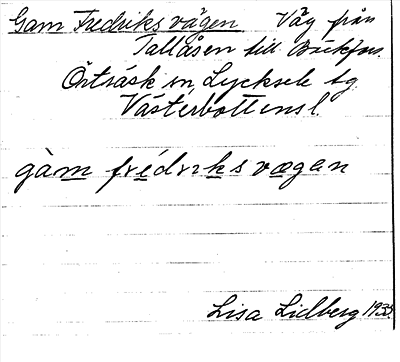 Gam Fredriks vägen Väg från
Tallåsen till Bäckfors.
Örträsk sn, Lycksele tg
Västerbottens l.
gàm frédrıks vægen
Lisa Lidberg 1935.